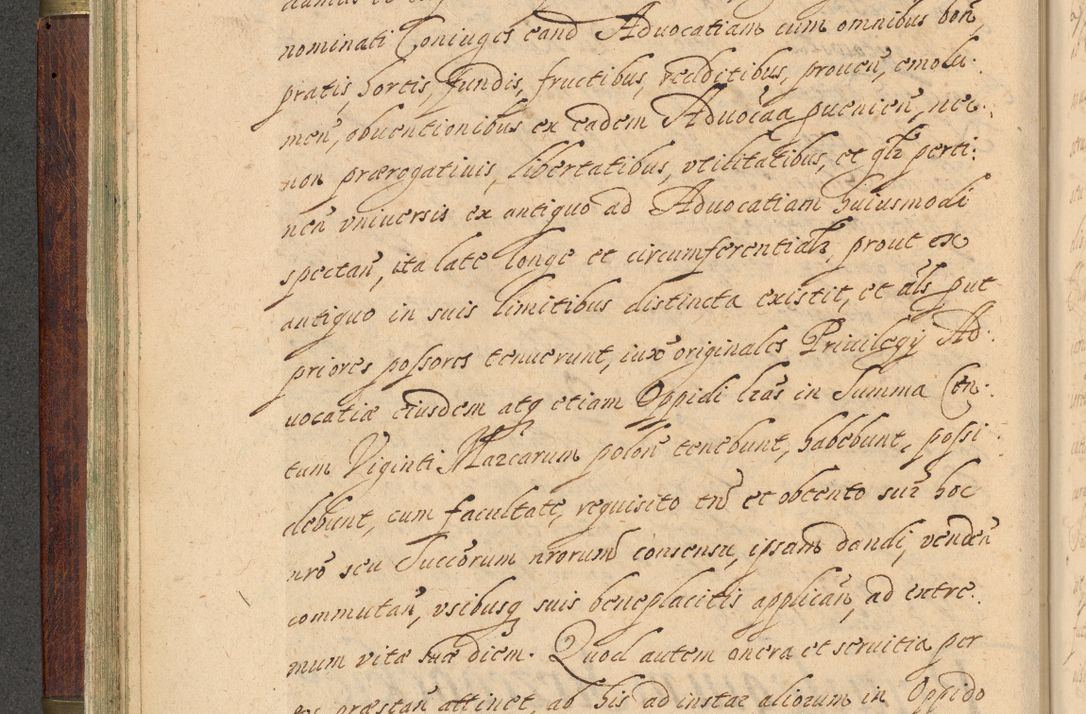 nominati Coniuges eand Aduocatiam cum omnibus bon̄,
pratis, hortis, fundis, fructibus, redditibus, prouen̄, emolu-
men̄, obuentionibus ex eadem Aduōcaa puenien̄, nec
non prærogatiuis, libertatibus, vtilitatibus, et gn̄lr perti-
nen̄ vniuersis ex antiquo ad Aduocatiam huiusmodi
spectan̄, ita late longe et circumferentialr, prout ex
antiquo in suis limitibus distincta existit, et als put
priores possores tenuerunt, iux̄ originales Priuilegij Ad-
uocatiæ eiusdem atq etiam Oppidi lr̄as in Summa Cen-
tum Viginti Marcarum polon̄ tenebunt, habebunt, possi
debunt, cum facultate, requisito tn̄ et obtento sup hoc
nr̄o seu Succ̄orum nr̄orum consensu, ipsam dandi, venden̄
commutan̄, vsibusq suis beneplacitis applican̄, ad extre-
mum vitæ suæ diem. Quod autem onera et seruitia per
eos præstan̄ attinet, ab his ad instar aliorum in Oppido